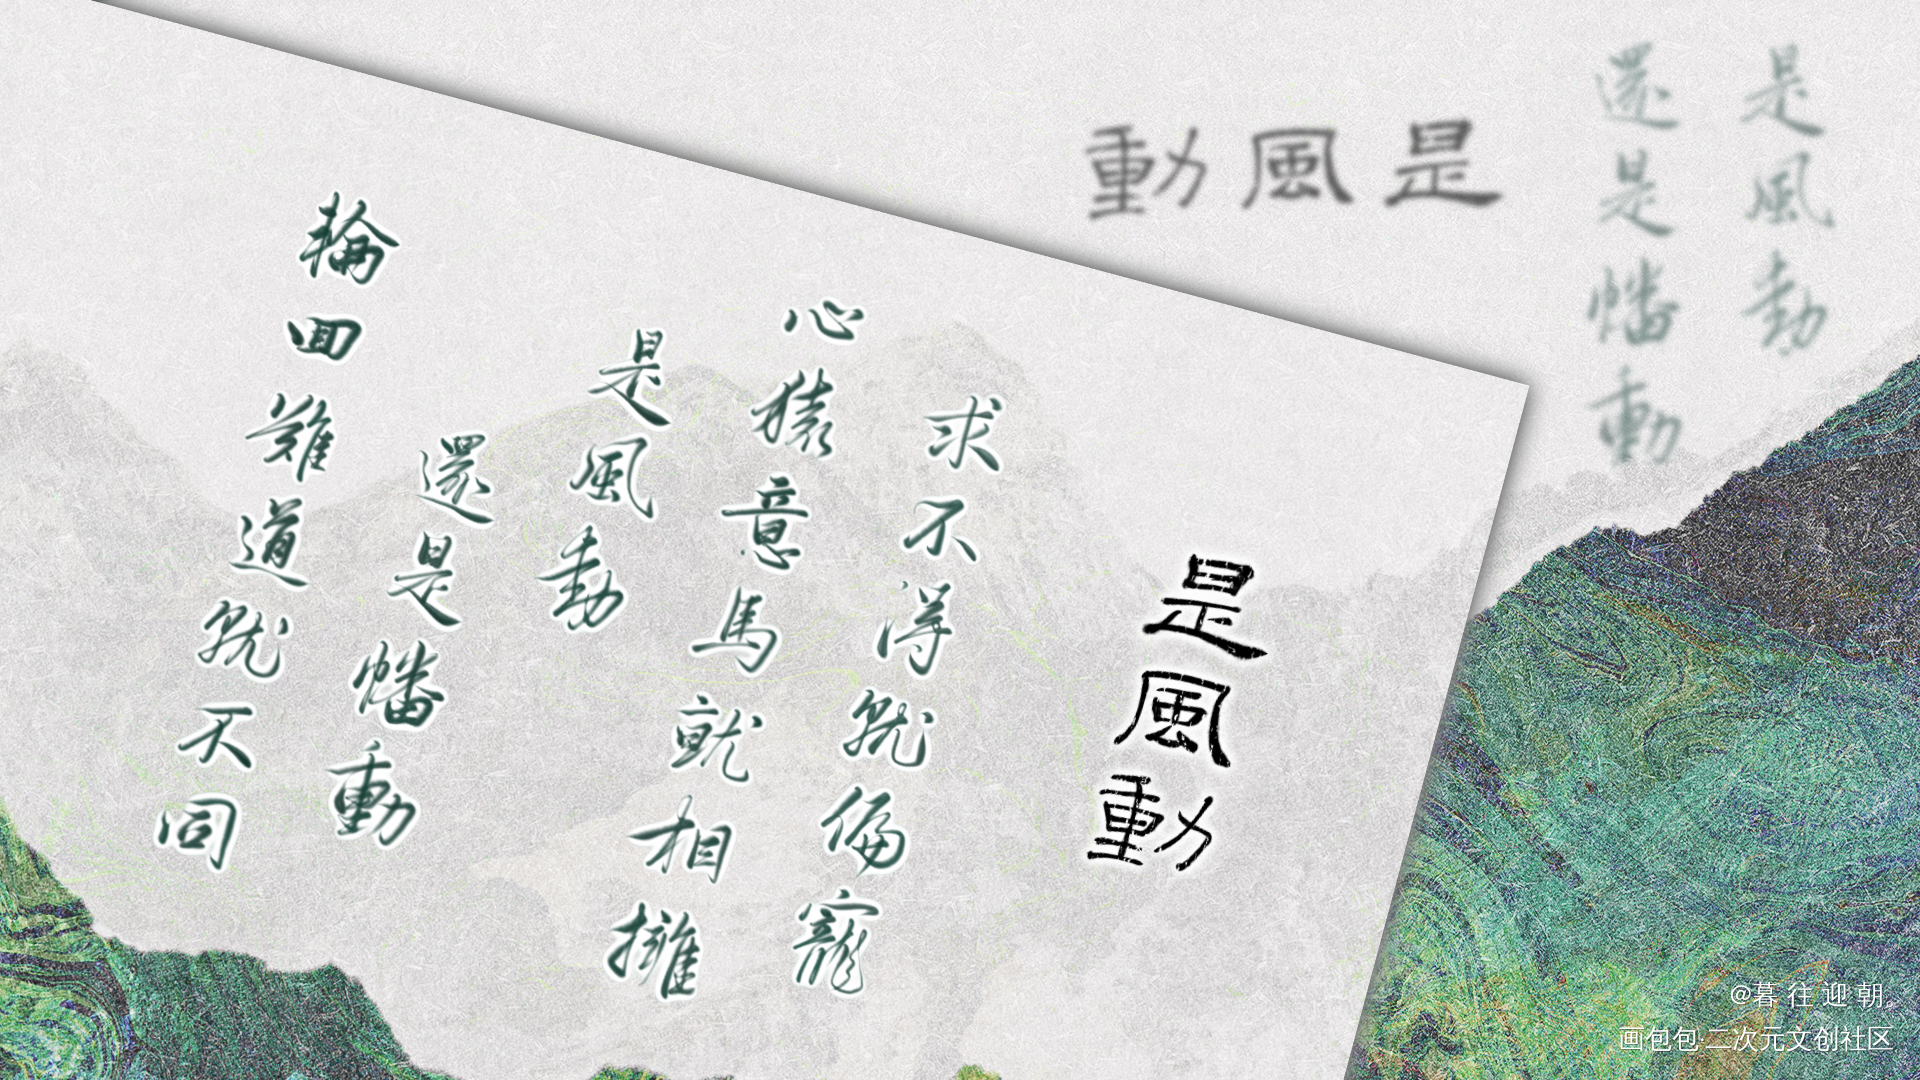 是風動
還是幡動
是風動
是風動
求不得就偏寵
心猿意馬就相擁
是風動
還是幡動
輪回難道就不同
@暮往迎朝。
画包包·二次元文创社区